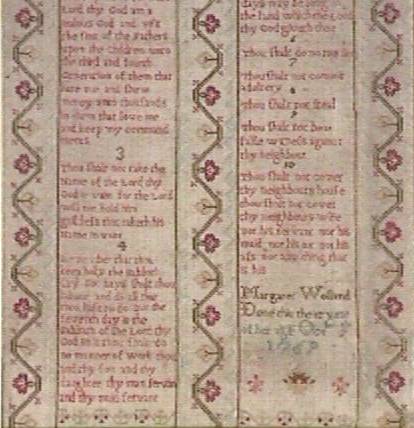 Lord thy God am a
Jealous God and visit
the sins of the Fathers
upon the Children unto
the third and fourth
Generation of them that
hate me and shew
mercy unto thousands
in them that love me
and keep my command
ments
3
Thou shalt not take the
Name of the Lord thy
God in vain for the Lord
will not hold him
guiltless that taketh his
Name in vain
4
Remember that thou
keep holy the Sabbath
Day six days shalt thou
labour and do all that
thou hast to do but the
seventh day is the
Sabbath of the Lord thy
God in it thou shalt do
no manner of work thou
and thy son and thy
daughter thy man servant
and thy maid servant
days may be long
the land which the Lord
thy God giveth thee
Thou shalt do no
7
Thou shalt not commit
adultery
8
Thou shalt not steal
9
Thou shalt not bear
false witness against
thy neighbour
10
Thou shalt not covet
thy neighbours house
thou shalt not covet
thy neighbours wife
nor his servant nor his
maid nor his ox nor his
ass nor any thing that
is his
Margaret
Done this the year
of her age